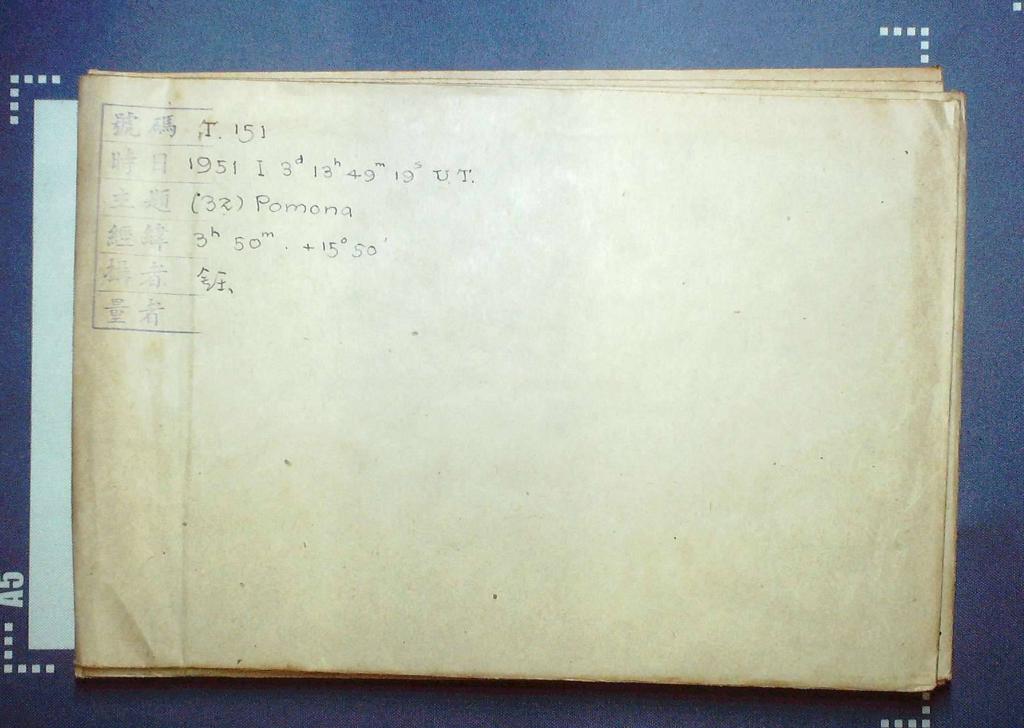 號碼 T. 151
時日 1951 I 3ᵈ 13ʰ 49ᵐ 19ˢ U.T.
主題 (32) Pomona
經緯 3ʰ 50ᵐ. +15° 50'
攝者 鈺
量者
A5